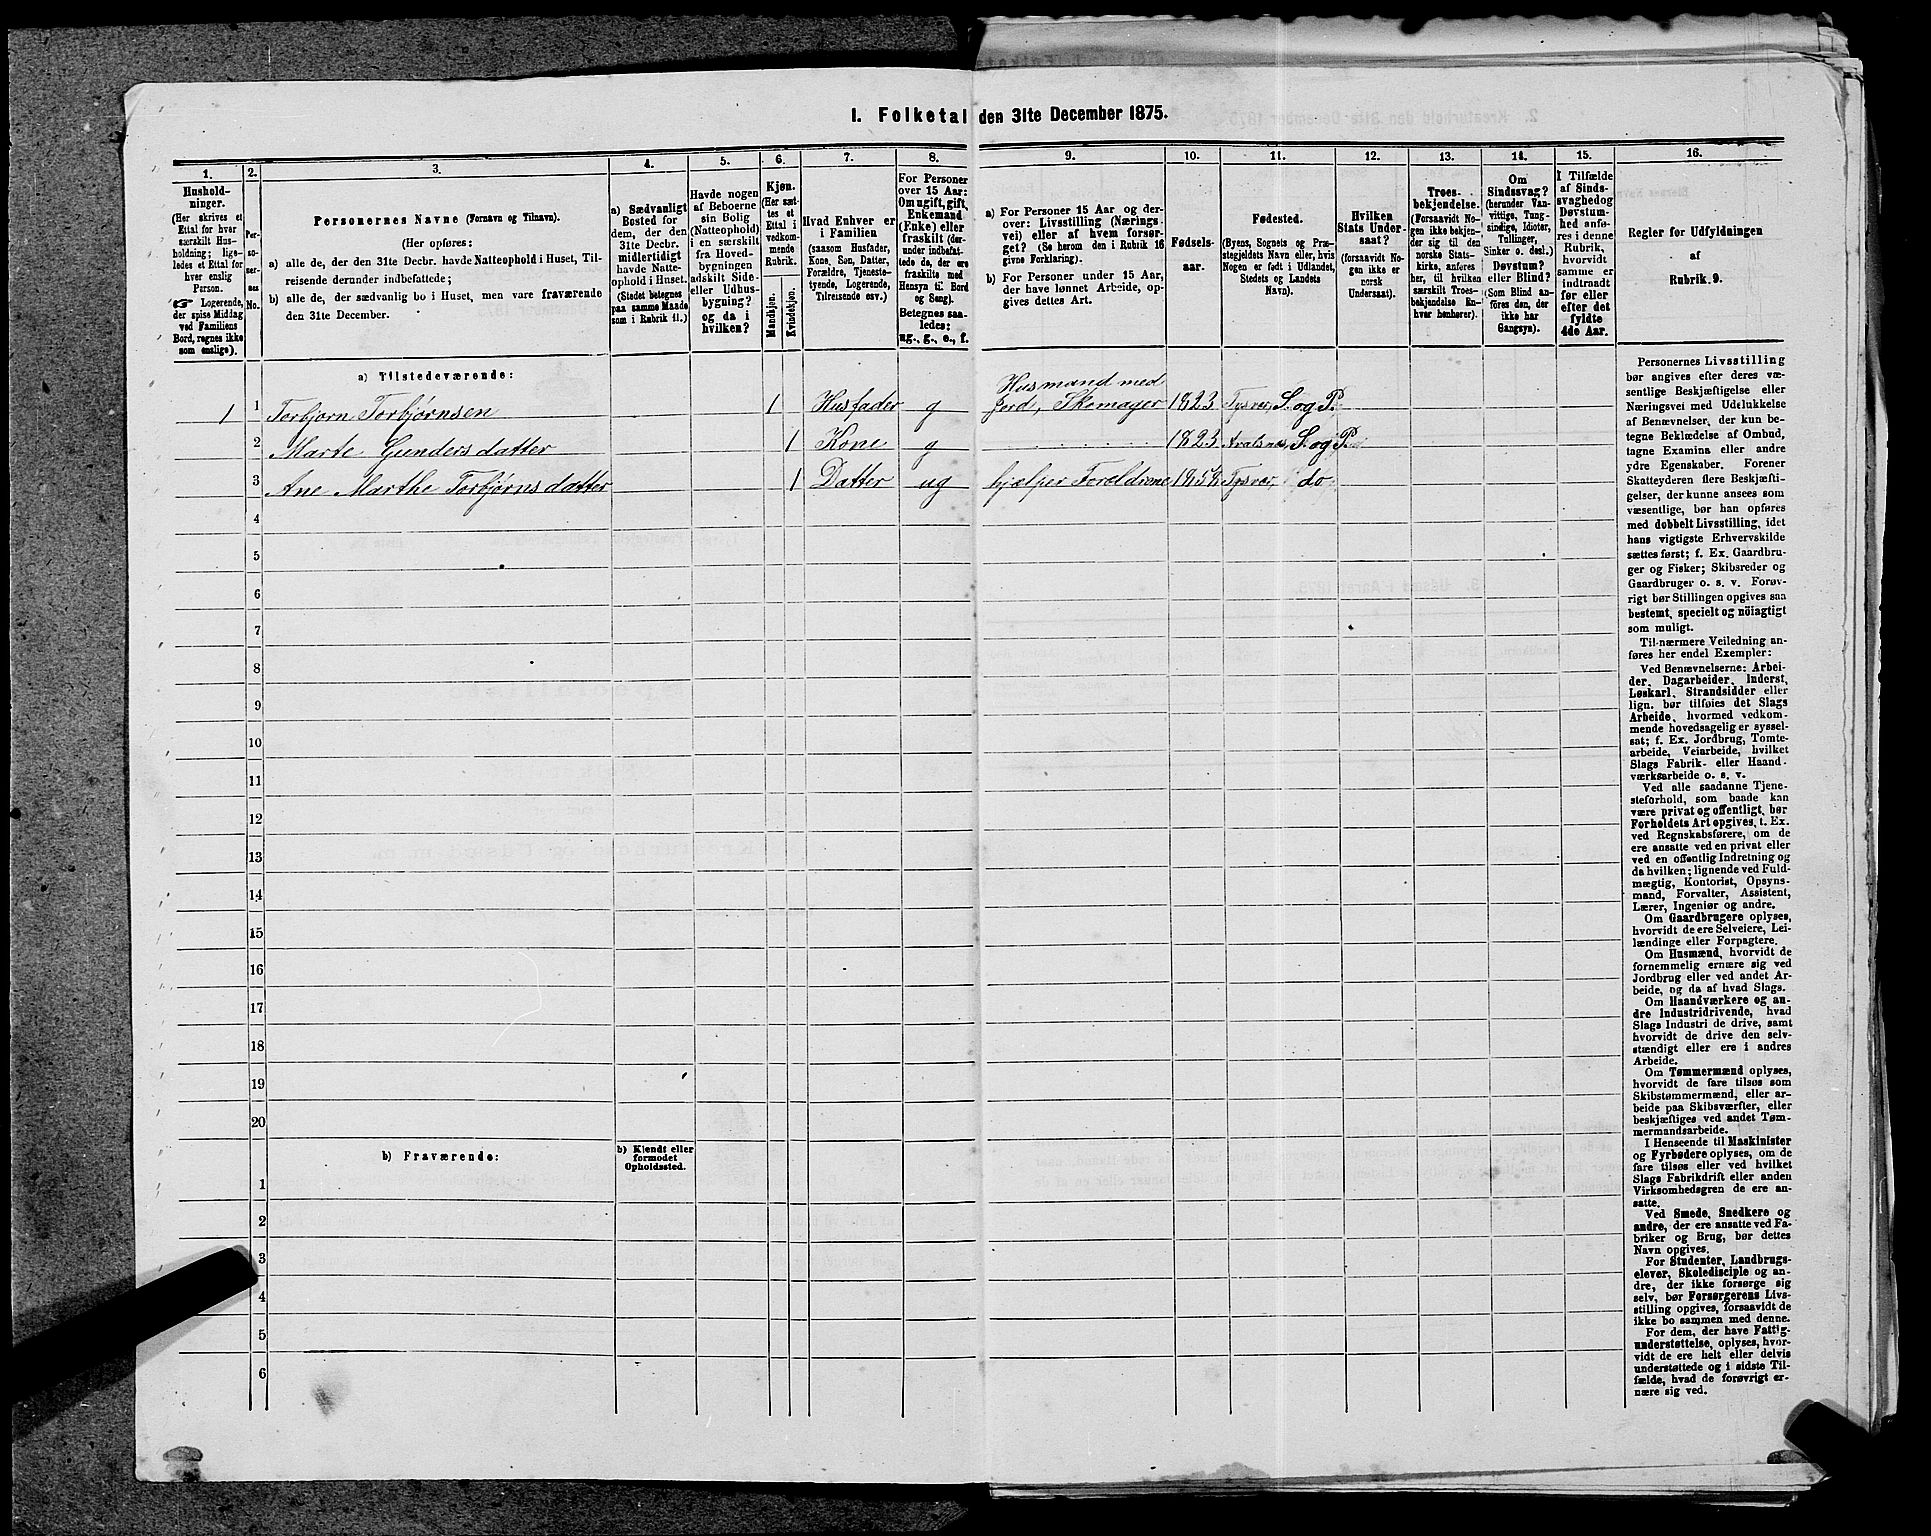 I. Folketal den 31te December 1875.
1. 2. 3. 4. 5. 6. 7. 8. 9. 10. 11. 12. 13. 14. 15. 16.
Hushold-
ninger.
(Her skrives et
Ettal for hver
særskilt Hus-
holdning; lige-
ledes et Ettal for
hver enslig
Person.
☞ Logerende,
der spise Middag
ved Familiens
Bord, regnes ikke
som enslige).
Per-
so-
ner-
nes
No.
Personernes Navne (Fornavn og Tilnavn).
(Her opføres:
a) alle de, der den 31te Decbr. havde Natteophold i Huset, Til-
reisende derunder indbefattede;
b) alle de, der sædvanlig bo i Huset, men vare fraværende
den 31te December.
a) Sædvanligt
Bosted for
dem, der den
31te Decbr.
midlertidigt
havde Natte-
ophold i Huset.
(Stedet betegnes
paa samme Maade
som i Rubrik 11.)
Havde nogen
af Beboerne
sin Bolig
(Natteophold)
i en særskilt
fra Hoved-
bygningen
adskilt Side-
eller Udhus-
bygning?
og da i
hvilken?
Kjøn.
(Her sæt-
tes et
Ettal i
vedkom-
mende
Rubrik.
Mandkjøn.
Kvindekjøn.
Hvad Enhver er
i Familien
(saasom Husfader,
Kone, Søn, Datter,
Forældre, Tjeneste-
tyende, Logerende,
Tilreisende osv.)
For Personer
over 15 Aar:
Om ugift, gift,
Enkemand
(Enke) eller
fraskilt (der-
under indbefat-
tede de, der ere
fraskilte med
Hensyn til Bord
og Seng).
Betegnes saa-
ledes:
ug., g., e., f.
a) For Personer 15 Aar og der-
over: Livsstilling (Nærings-
vei) eller af hvem forsør-
get? (Se herom den i Rubrik 16
givne Forklaring).
b) For Personer under 15 Aar,
der have lønnet Arbeide, op-
gives dettes Art.
Fødsels-
aar.
Fødested.
(Byens, Sognets og Præ-
stegjeldets Navn eller, hvis
Nogen er født i Udlandet,
Stedets og Landets
Navn).
Hvilken
Stats Under-
saat?
(forsaavidt No-
gen ikke er
norsk
Undersaat).
Troes-
bekjendelse.
(Forsaavidt No-
gen ikke bekjen-
der sig til den
norske Stats-
kirke, anføres
her, til hvilken
særskilt Troes-
bekjendelse En-
hver henhører).
Om
Sindssvag?
(herunder Van-
vittige, Tung-
sindige, Idioter,
Tullinger,
Sinker o. desl.)
Døvstum?
eller Blind?
(Som Blind an-
føres den, der
ikke har
Gangsyn).
I Tilfælde
af Sinds-
svaghed og
Døvstum-
hed anfø-
res i denne
Rubrik,
hvorvidt
samme er
indtraadt
før eller
efter det
fyldte
4de Aar.
Regler for Udfyldningen
af
Rubrik 9.
a) Tilstedeværende:
Husmand med
1 1 Torbjørn Torbjørnsen 1 Husfader g Jord, Skomager 1823 Tysvær, S. og P.
2 Marte Gundersdatter 1 Kone g 1823 Avalsnes, S. og P.
3 Ane Marthe Torbjørnsdatter 1 Datter ug hjælper Foreldrene Tysvær, do
4
5
6
7
8
9
10
11
12
13
14
15
16
17
18
19
20
b) Fraværende:
b) Kjendt eller
formodet
Opholdssted.
1
2
3
4
5
6
Personernes Livsstilling
bør angives efter deres væ-
sentlige Beskjæftigelse eller
Næringsvei med Udelukkelse
af Benævnelser, der kun be-
tegne Beklædelse af Ombud,
tagne Examina eller andre
ydre Egenskaber. Forener
Skatteyderen flere Beskjæfti-
gelser, der kunne ansees som
væsentlige, bør han opføres
med dobbelt Livsstilling, idet
hans vigtigste Erhvervskilde
sættes først; f. Ex. Gaardbru-
ger og Fisker; Skibsreder og
Gaardbruger o. s. v. Forøv-
rigt bør Stillingen opgives saa
bestemt, specielt og nöiagtigt
som muligt.
Til nærmere Veiledning an-
føres her endel Exempler:
Ved Benævnelserne: Arbei-
der, Dagarbeider, Inderst,
Løskarl, Strandsidder eller
lign. bør tilføies det Slags
Arbeide, hvormed vedkom-
mende hovedsagelig er syssel-
sat; f. Ex. Jordbrug, Tomte-
arbeide, Veiarbeide, hvilket
Slags Fabrik- eller Haand-
værksarbeide o. s. v.
Ved alle saadanne Tjene-
steforhold, som baade kan
være privat og offentligt, bør
Forholdets Art opgives, t. Ex.
ved Regnskabsførere, om de
ere ansatte ved en privat eller
ved en offentlig Indretning og
da hvilken; lignende ved Fuld-
mægtig, Kontorist, Opsyns-
mand, Forvalter, Assistent,
Lærer, Ingeniør og andre.
Om Gaardbrugere oplyses,
hvorvidt de ere Selveiere, Lei-
lændinge eller Forpagtere.
Om Husmænd, hvorvidt de
fornemmelig ernære sig ved
Jordbrug eller ved andet Ar-
beide, og da af hvad Slags.
Om Haandværkere og an-
dre Industridrivende, hvad
Slags Industri de drive, samt
hvorvidt de drive den selv-
stændigt eller ere i andres
Arbeide.
Om Tømmermænd oplyses,
hvorvidt de fare tilsøs som
Skibstømmermænd, eller ar-
beide paa Skibsværfter, eller
beskjæftiges ved andet Tøm-
mermandsarbeide.
I Henseende til Maskinister
og Fyrbødere oplyses, om de
fare tilsøs eller ved hvilket
Slags Fabrikdrift eller anden
Virksomhedsgren de ere an-
satte.
Ved Smede, Snedkere og
andre, der ere ansatte ved Fa-
briker og Brug, bør dettes
Navn opgives.
For Studenter, Landbrugs-
elever, Skoledisciple og an-
dre, der ikke forsørge sig
selv, bør Forsørgerens Livs-
stilling opgives, forsaavidt de
ikke bo sammen med denne.
For dem, der have Fattig-
understøttelse, oplyses, hvor-
vidt de ere helt eller delvis
understøttede og i sidste Til-
fælde, hvad de forøvrigt er-
nære sig ved.